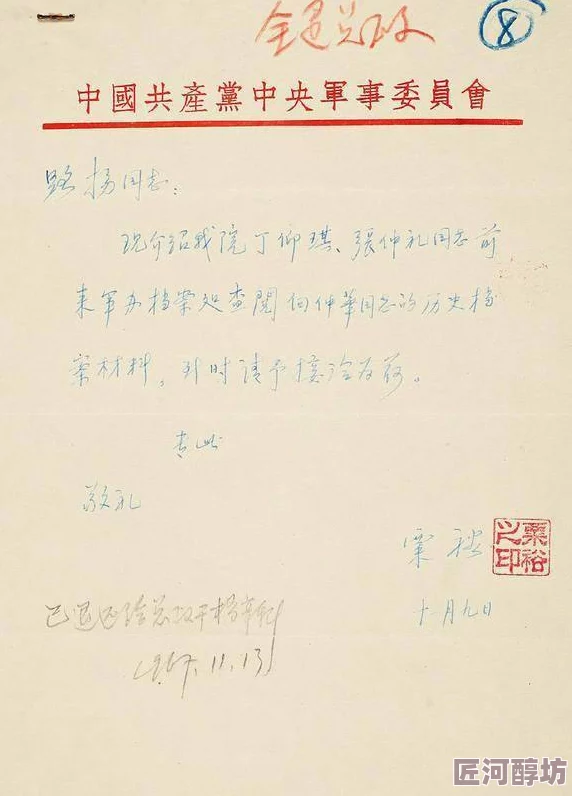 全退总政
8
中國共產黨中央軍事委員會
路杨同志：
现介绍我院丁仰琪、張仲礼同志前
来军办档案处查閱何仲華同志的历史档
案材料，到时请予接洽为荷。
专此
敬礼
粟裕
粟裕之印
十月九日
已退还给总政干档
1967.11.13
匠河醇坊